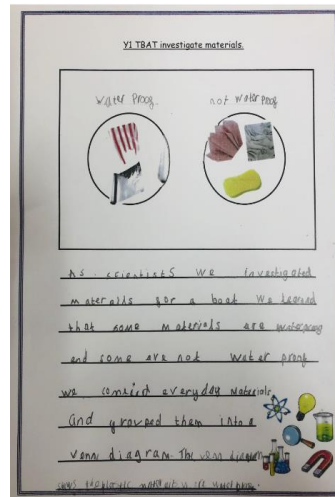 Y1 TBAT investigate materials.
Water Proof. not water proof
As scientists we investigated
materials for a boat We learned
that some materials are waterproof
and some are not water proof
we everyday materials
and grouped them into a
venn diagram. The venn diagram